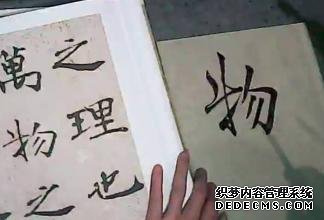 之理也
萬物之
物
织梦内容管理系统
DEDECMS.COM